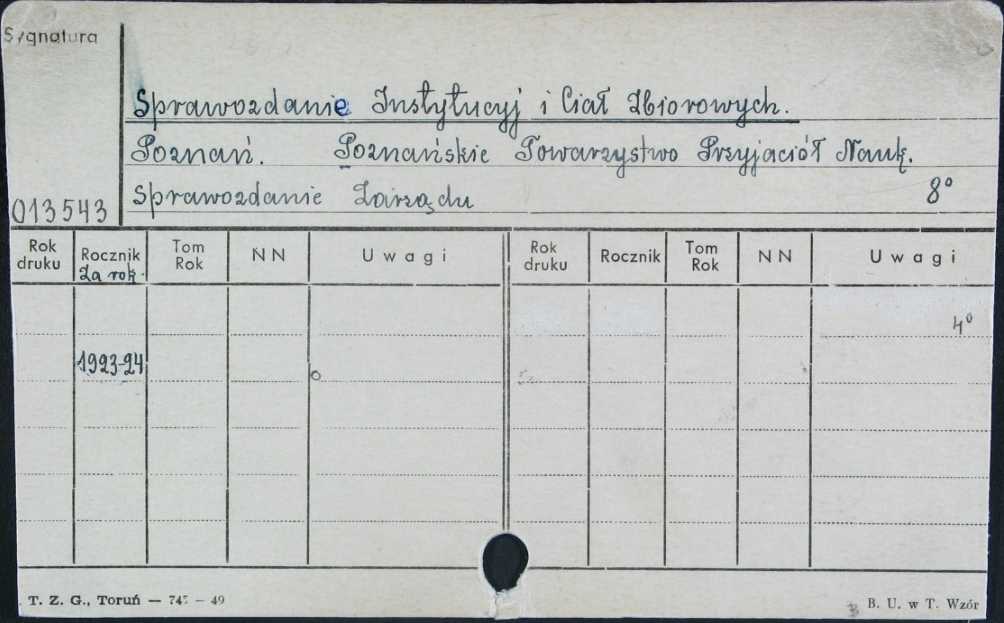 Sygnatura
Sprawozdanie Instytucyj i Ciał Zbiorowych.
Poznań. Poznańskie Towarzystwo Przyjaciół Nauk.
Sprawozdanie Zarządu 8°
013543
Rok druku Rocznik Za rok. Tom Rok NN Uwagi Rok druku Rocznik Tom Rok NN Uwagi
4°
1923-24
T. Z. G., Toruń — 747 — 49 B. U. w T. Wzór